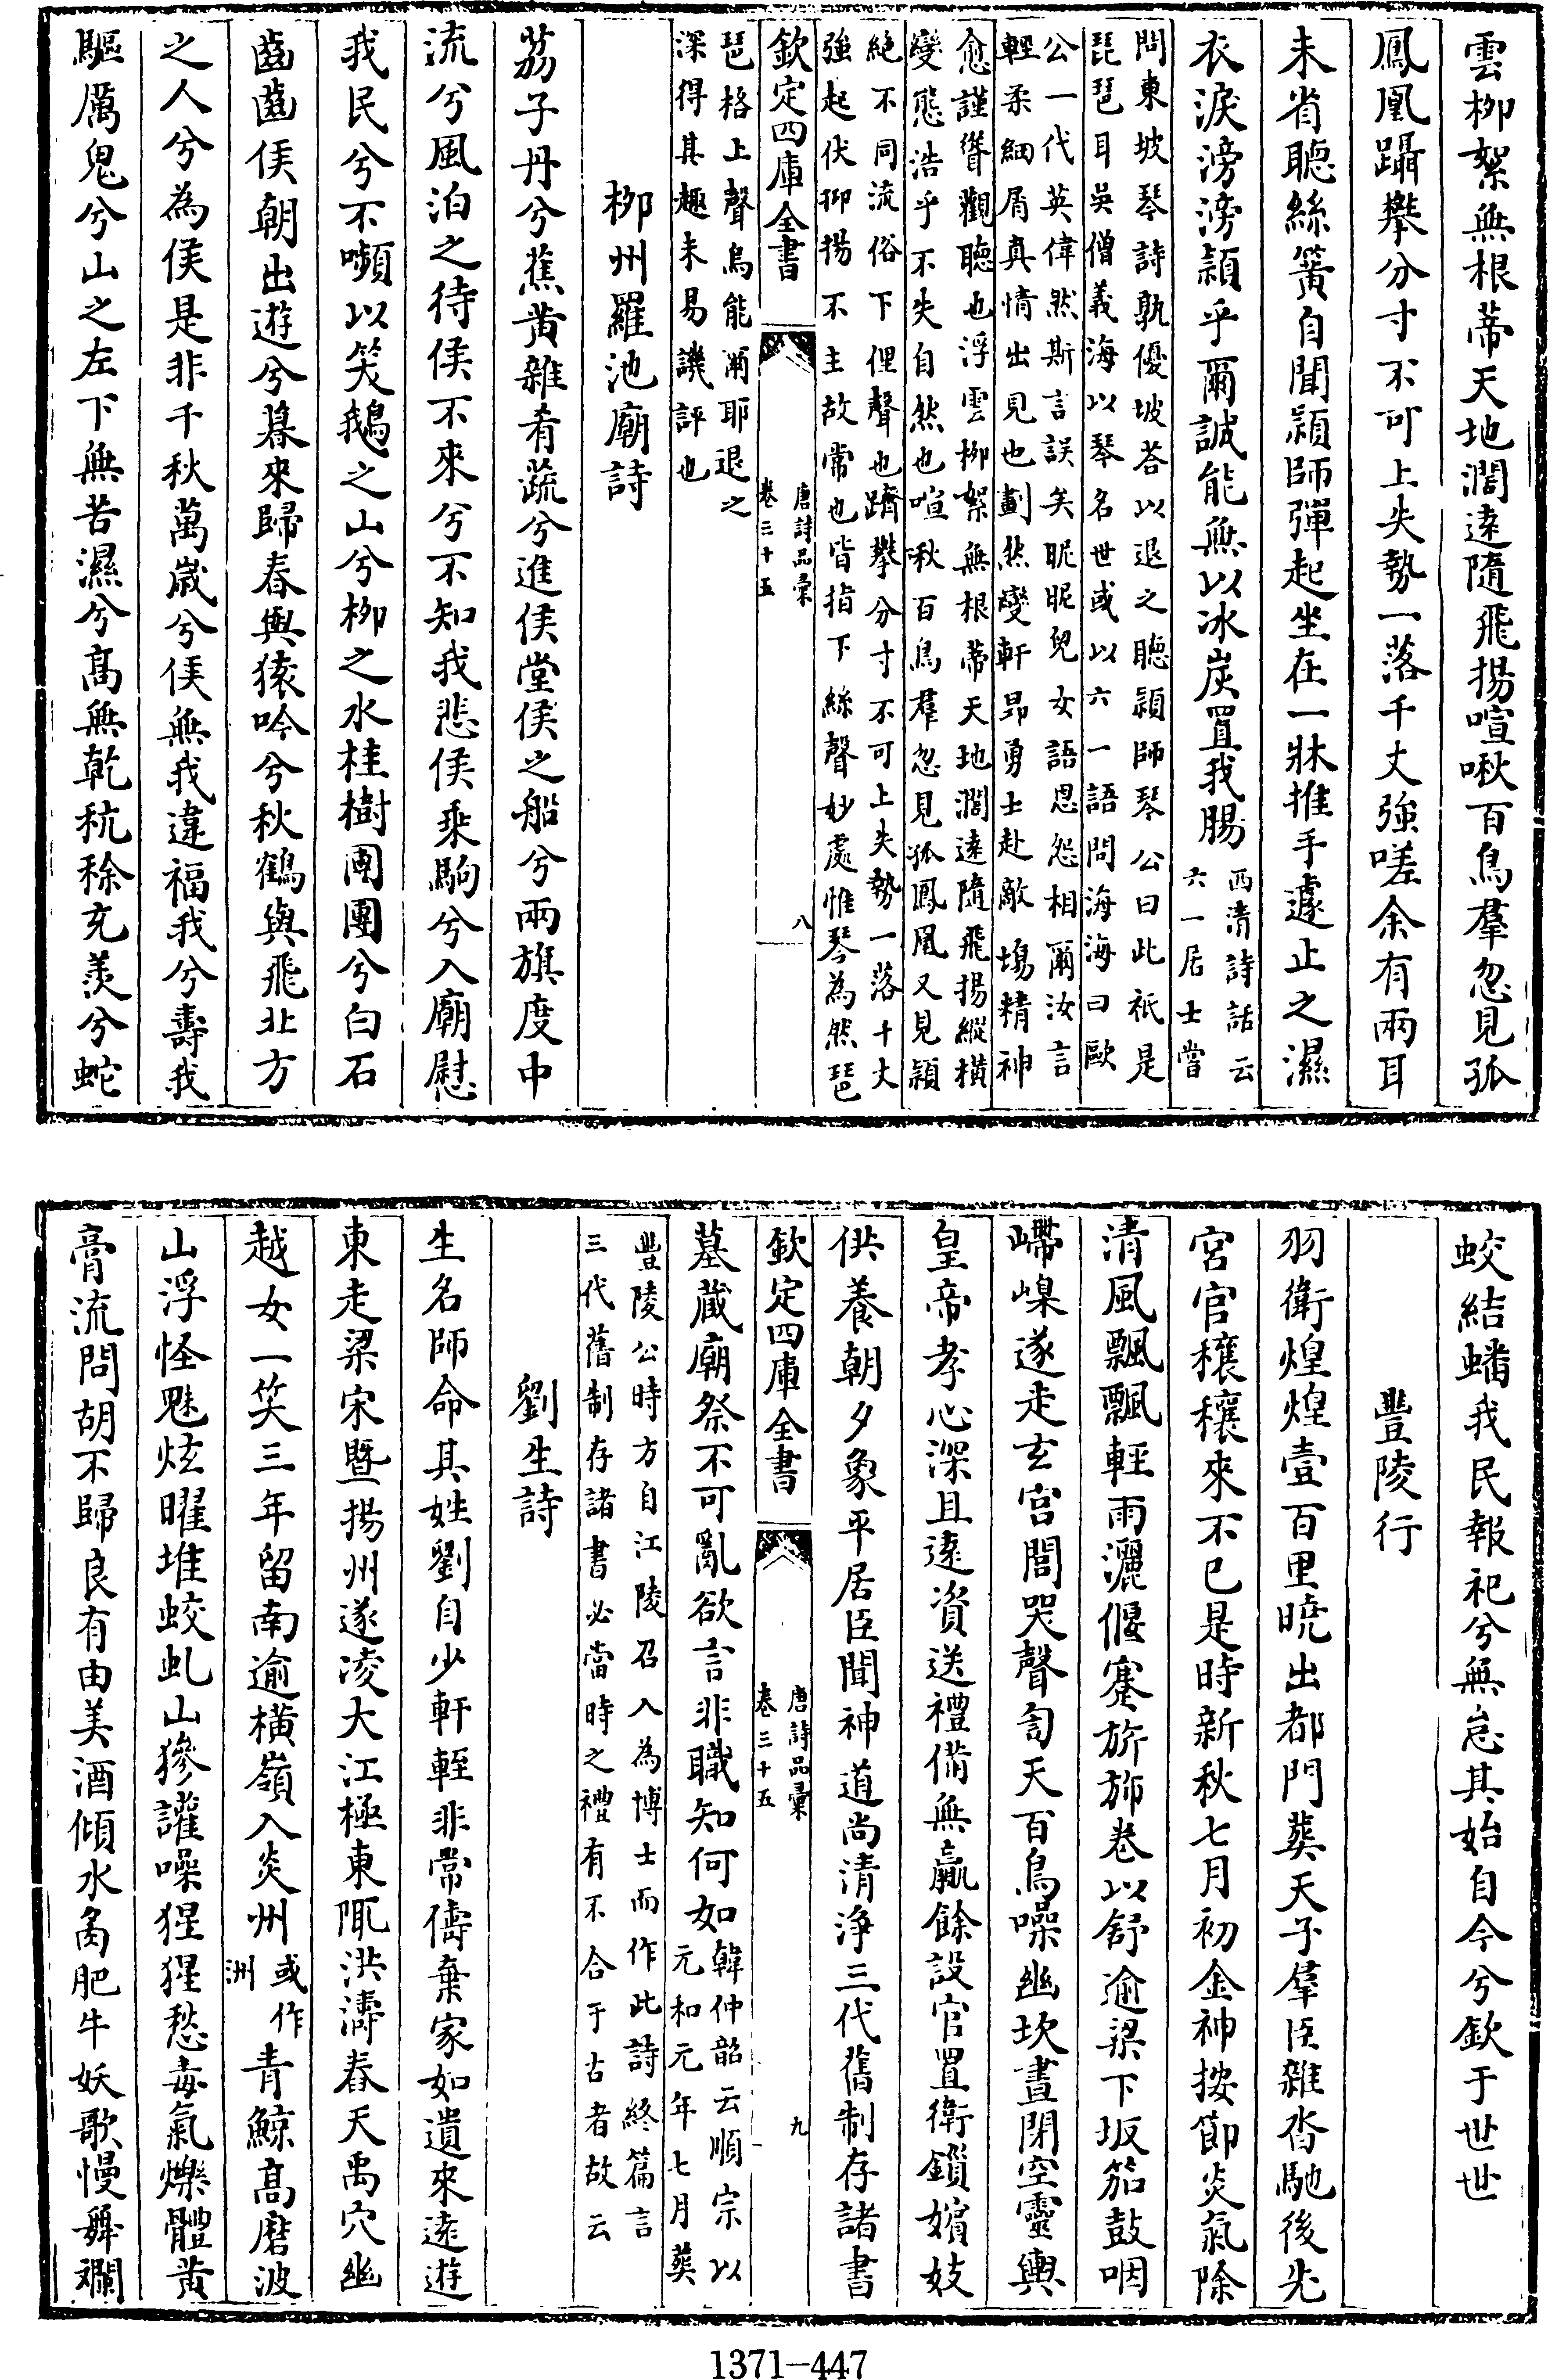 雲柳絮無根蒂天地濶逺隨飛揚喧啾百鳥羣忽見孤
鳳凰躋攀分寸不可上失勢一落千丈強嗟余有兩耳
未省聽絲簧自聞潁師彈起坐在一牀推手遽止之濕
衣淚滂滂潁乎爾誠能無以冰炭置我腸
西清詩話云
六一居士嘗
問東坡琴詩孰優坡荅以退之聽潁師琴公曰此祇是
琵琶耳吳僧義海以琴名世或以六一語問海海曰歐
公一代英偉然斯言誤矣昵昵兒女語恩怨相爾汝言
輕柔細屑真情出見也劃然變軒昻勇士赴敵塲精神
愈謹聳觀聽也浮雲柳絮無根蒂天地濶逺隨飛揚縱橫
變態浩乎不失自然也喧啾百鳥羣忽見孤鳳凰又見潁
絶不同流俗下俚聲也躋攀分寸不可上失勢一落千丈
強起伏抑揚不主故常也皆指下絲聲妙處惟琴為然琵
欽定四庫全書
唐詩品彚
卷三十五
八
琶格上聲烏能爾耶退之
深得其趣未易譏評也
柳州羅池廟詩
荔子丹兮蕉黄雜肴蔬兮進侯堂侯之船兮兩旗度中
流兮風泊之待侯不來兮不知我悲侯乗駒兮入廟慰
我民兮不嚬以笑鵝之山兮柳之水桂樹團團兮白石
齒齒侯朝出遊兮暮來歸春與猿吟兮秋鶴與飛北方
之人兮為侯是非千秋萬嵗兮侯無我違福我兮夀我
驅厲鬼兮山之左下無苦濕兮髙無乾秔稌充羨兮蛇
蛟結蟠我民報祀兮無怠其始自今兮欽于世世
豐陵行
羽衛煌煌壹百里曉出都門葬天子羣臣雜沓馳後先
宮官穰穰來不已是時新秋七月初金神按節炎氣除
清風飄飄輕雨灑偃蹇旂斾巻以舒逾梁下坂笳鼓咽
嵽嵲遂走玄宮閭哭聲訇天百鳥噪幽坎晝閉空靈輿
皇帝孝心深且逺資送禮備無贏餘設官置衛鎖嬪妓
供養朝夕象平居臣聞神道尚清浄三代舊制存諸書
欽定四庫全書
唐詩品彚
卷三十五
九
墓藏廟祭不可亂欲言非職知何如
韓仲韶云順宗以
元和元年七月葬
豐陵公時方自江陵召入為博士而作此詩終篇言
三代舊制存諸書必當時之禮有不合于古者故云
劉生詩
生名師命其姓劉自少軒輊非常儔棄家如遺來逺遊
東走梁宋暨揚州遂凌大江極東陬洪濤春天禹穴幽
越女一笑三年留南逾橫嶺入炎州
或作
洲
青鯨髙磨波
山浮怪魅炫曜堆蛟虬山㺑讙噪猩猩愁毒氣爍體黄
膏流問胡不歸良有由美酒傾水禽肥牛妖歌慢舞爛
1371-447